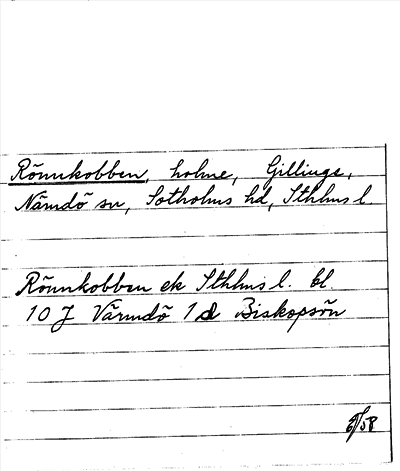 Rönnkobben, holme, Gillinge,
Nämdö sn, Sotholms hd, Sthlms l.
Rönnkobben ek Sthlms l. bl
10 J Värmdö 1 d Biskopsön
/58